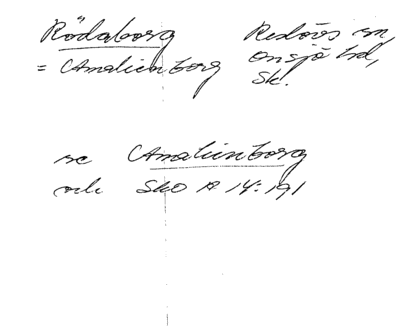 Rödaborg Reslövs sn,
= Amalienborg Onsjö hd,
Sk.
se Amalienborg
och SkO A 14:191